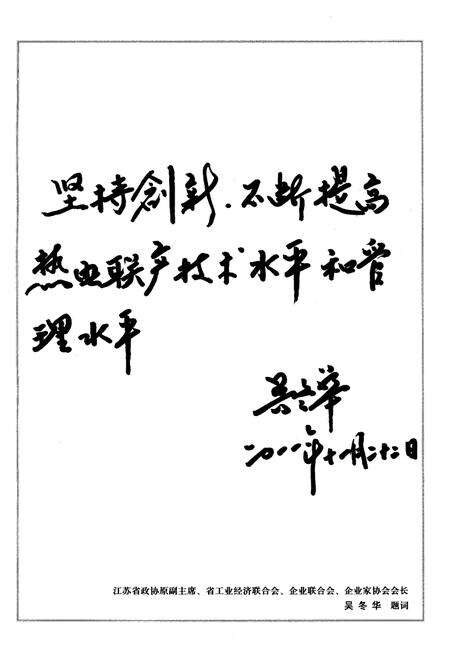 坚持创新.不断提高
热电联产技术水平和管
理水平
吴冬华
二〇一一年十一月二十二日
江苏省政协原副主席、省工业经济联合会、企业联合会、企业家协会会长
吴冬华 题词